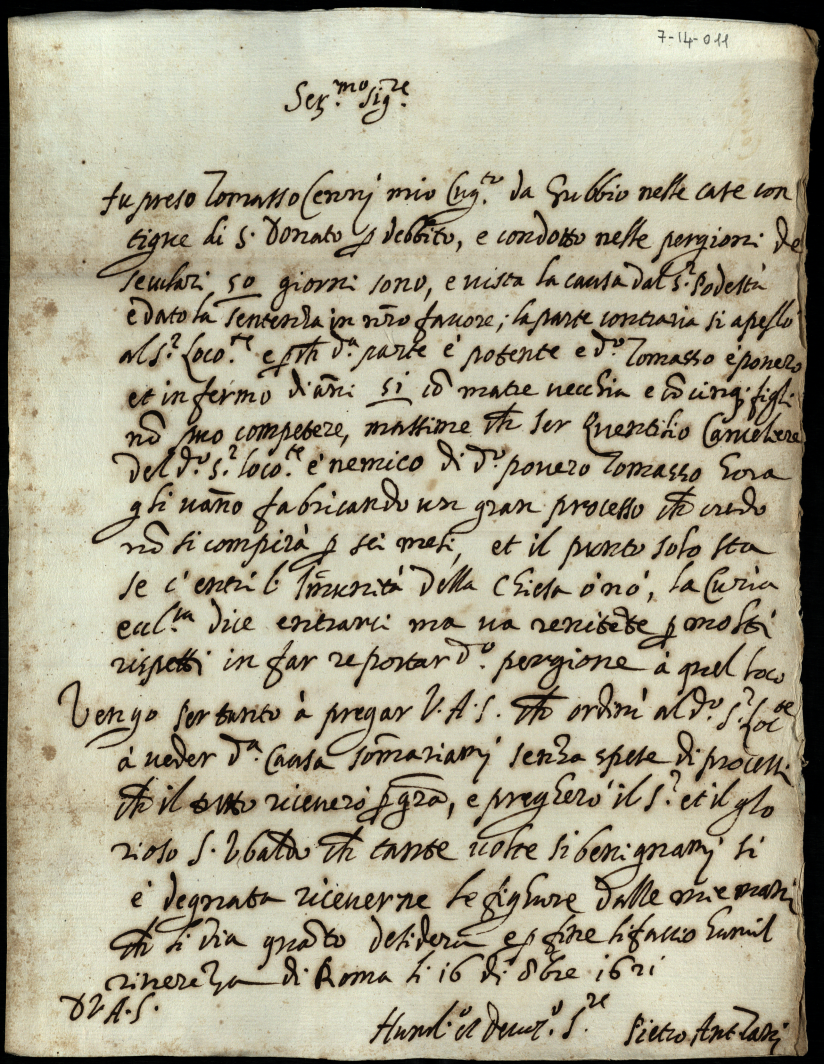 7-14-011
Ser.mo Sig.re
Fu preso Tomasso Cennj mio Cug.to da Gubbio nelle case con
tigue di S. Donato p debbito, e condotto nelle pergioni de
seculari 50 giorni sono, e vista la causa dal S.r Podestà
e dato la sentenza in nro favore; la parte contraria si apellò
al S.r Loco.te e p ch d.a parte è potente e d.o Tomasso è povero
et infermo di anni 51 cō matre vecchia e cō cinq; figli
nō puo competere, massime ch ser Quentilio Canceliere
del d.o S.r loco.te è nemico di d.o povero Tomasso hora
gli vanno fabricando un gran processo ch credo
nō si compirà p sei mesi, et il punto solo sta
se c'entri l' Imunità della Chiesa ò nò, la Curia
eccl.ca dice entrarci ma va renitēte p molti
rispetti in far reportar d.o pergione à quel loco
Vengo per tanto à pregar V. A. S. ch ordini al d.o S.r Loc.te
à veder d.a Causa somariamj senza spese di processi
ch il tutto riceverò p gra, e pregherò il S.r et il glo
rioso S. Ubaldo ch tante volte si benignamj si
è degnata riceverne le fighure dalle mie mani
ch li dia quāto desidera e p fine li faccio humil
rivereza di Roma li 16 di 8bre 1621
D V. A. S.
Humil.o et Devot.o S.re Pietro Ant